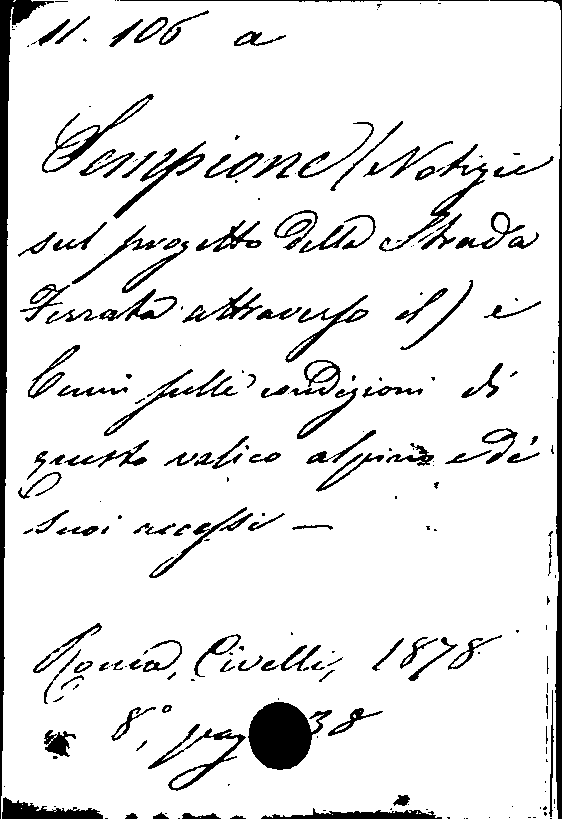 11. 106 a
Sempione (Notizie
sul progetto della Strada
Ferrata attraverso il) e
Cenni sulle condizioni di
questo valico alpino e de'
suoi accessi —
Roma, Civelli, 1878
8.°, pag 38